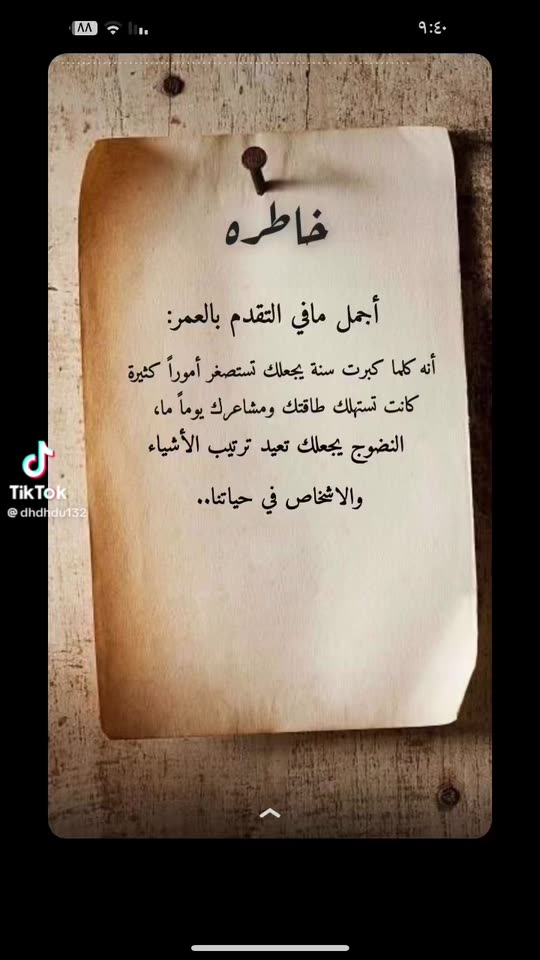 ٩:٤٠
٨٨
خاطره
أجمل مافي التقدم بالعمر:
أنه كلما كبرت سنة يجعلك تستصغر أموراً كثيرة
كانت تستهلك طاقتك ومشاعرك يوماً ما،
النضوج يجعلك تعيد ترتيب الأشياء
والاشخاص في حياتنا..
TikTok
@dhdhdu132